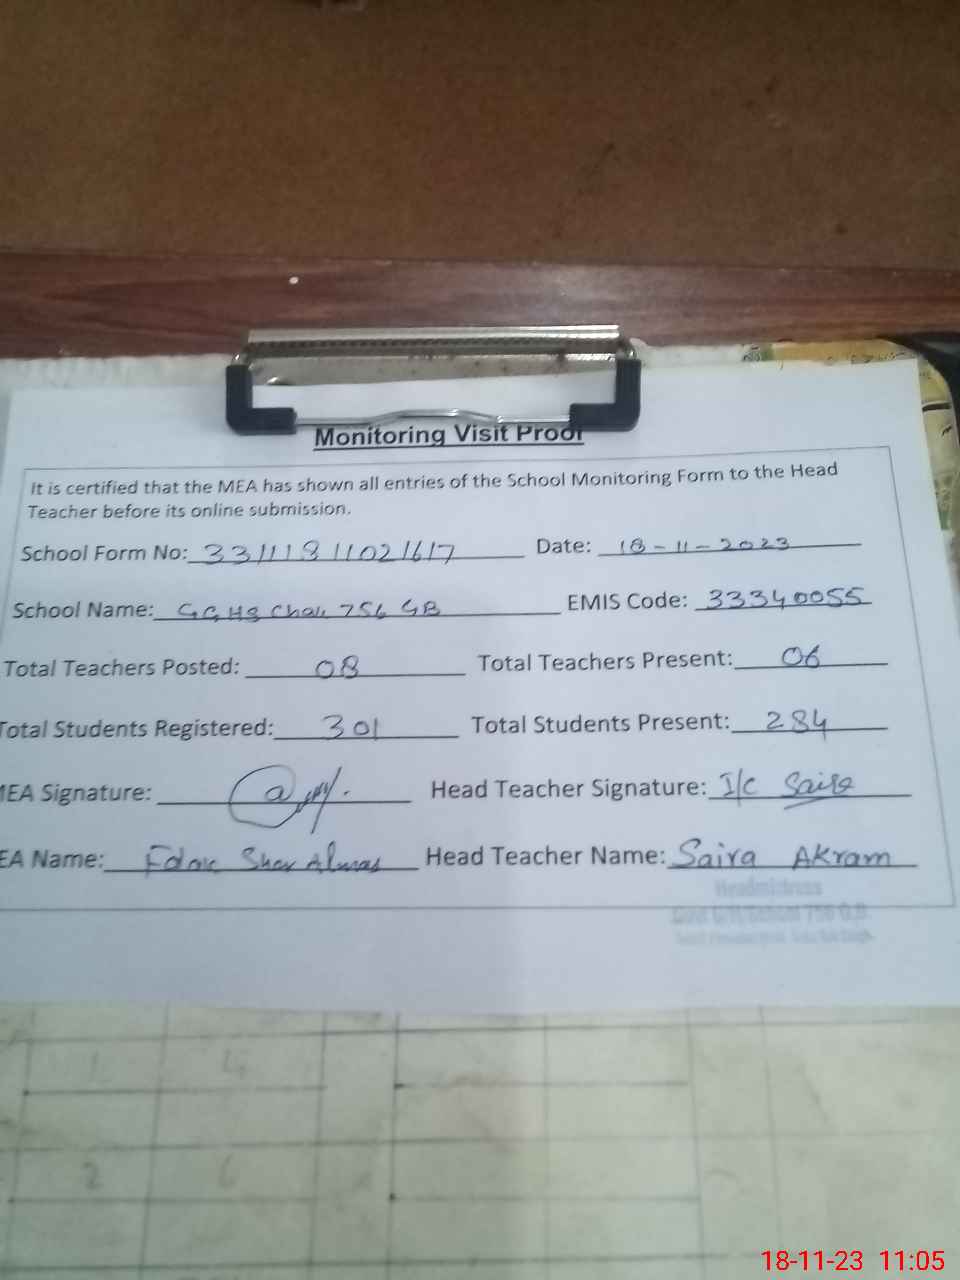 Monitoring Visit Proof
It is certified that the MEA has shown all entries of the School Monitoring Form to the Head
Teacher before its online submission.
School Form No: 33111811021617 Date: 18-11-2023
School Name: GGHS Chak 756 GB EMIS Code: 33340055
Total Teachers Posted: 08 Total Teachers Present: 06
Total Students Registered: 301 Total Students Present: 284
MEA Signature: Head Teacher Signature: I/C Saira
EA Name: Head Teacher Name: Saira AKram
Headmistress
Govt Girls School 756 G.B.
1 4
2 6
18-11-23 11:05